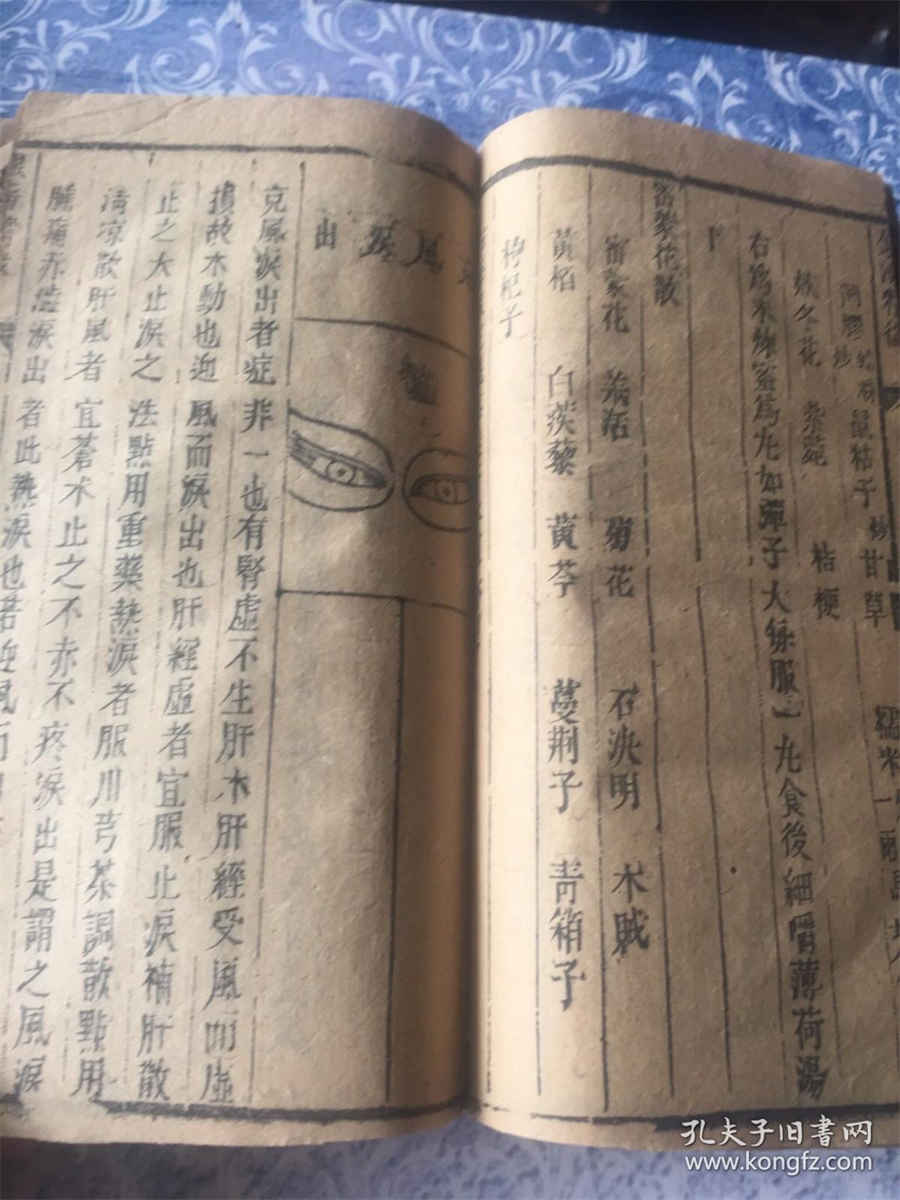 鼠粘子 炒 甘草 糯米一兩
欵冬花 紫菀 桔梗
右爲末煉蜜爲丸如彈子大每服一丸食後細嚼薄荷湯
下
密蒙花散
密蒙花 羌活 菊花 石決明 木賊
黃栢 白蒺藜 黃芩 蔓荆子 青箱子
枸杞子
風淚出
克風淚出者症非一也有腎虛不生肝木肝經受風而虛
損故木動也迎風而淚出也肝經虛者宜服止淚補肝散
止之大止淚之法點用重藥熱淚者服川芎茶調散點用
清凉散肝風者宜蒼术止之不赤不疼淚出是謂之風淚
腫痛赤澁淚出者此熱淚也若迎風而
孔夫子旧书网
www.kongfz.com